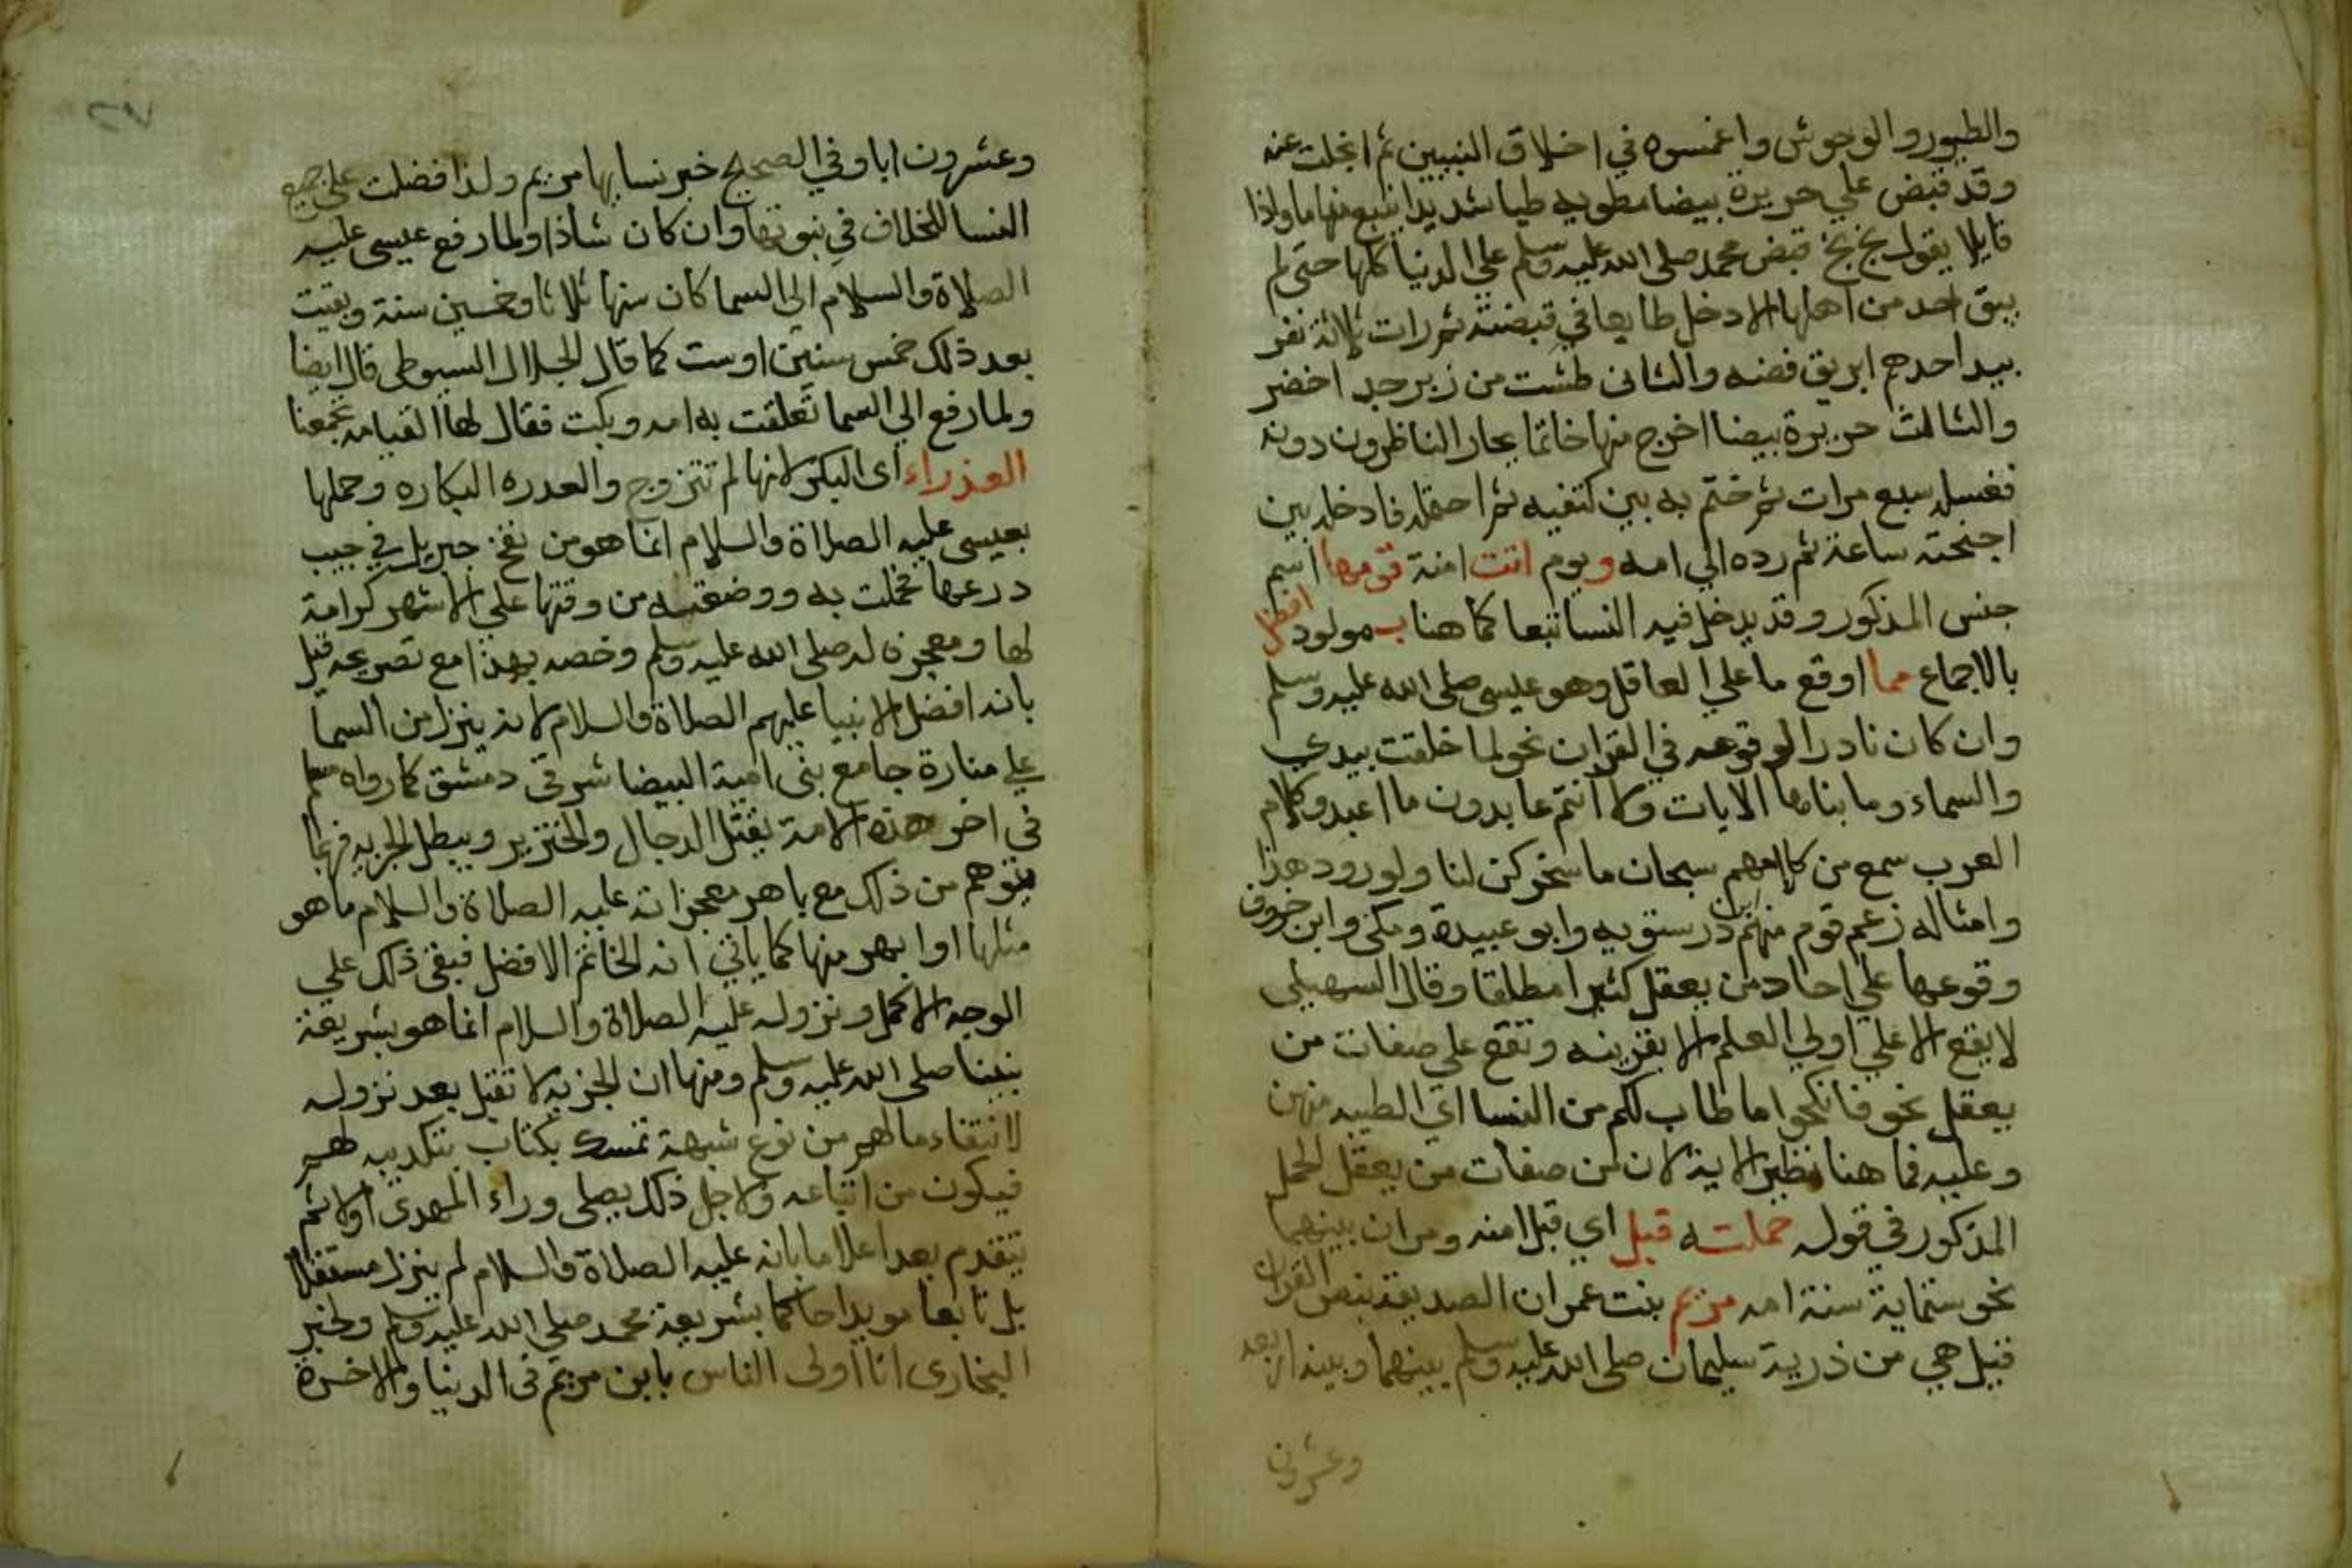 والطيور والوحوش واغمسوه في اخلاق النبيين ثم انجلت عنه
وقد قبض علي حريرة بيضا مطويه طيا شديدا ينبع منها ما واذا
قايلا يقول بخ بخ قبض محمد صلى الله عليه وسلم علي الدنيا كلها حتى لم
يبق احد من اهلها الا دخل طايعا في قبضته ثم رات ثلاثة نفر
بيد احدهم ابريق فضه والثانى طشت من زبرجد اخضر
والثالث حريرة بيضا اخرج منها خاتما يحار الناظرون دونه
فغسله سبع مرات ثم ختم به بين كتفيه ثم احتمله فادخله بين
اجنحته ساعة ثم رده الي امه ويوم اتت امنة قومها اسم
جنس المذكور وقد يدخل فيه النسا تبعا كما هنا ب مولود افضل
بالاجماع مما اوقع ما علي العاقل وهو عيسى صلى الله عليه وسلم
وان كان نادر الوقوعه في القران نحو لما خلقت بيدي
والسماء وما بناها الايات ولا انتم عابدون ما اعبد وكلام
العرب سمع من كلامهم سبحان ما سخركن لنا ولورود هذا
وامثاله زعم قوم منهم ابن درستويه وابو عبيدة ومكى وابن خروف
وقوعها علي احاد من يعقل كثيرا مطلقا وقال السهيلي
لا يقع الا علي اولي العلم الا بقرينه وتقع على صفات من
يعقل نحو فانكحوا ما طاب لكم من النسا اي الطيبه منهن
وعليه فما هنا نظير الاية لان من صفات من يعقل الحمل
المذكور في قوله حملته قبل اي قبل امنه ومر ان بينهما
نحو ستماية سنة امه مريم بنت عمران الصديقة بنص القران
قيل هي من ذرية سليمان صلى الله عليه وسلم بينهما وبينه اربعه
وعشرون
وعشرون ابا وفي الصحيح خير نسايها مريم ولذا فضلت علي جميع
النسا للخلاف في نبوتها وان كان شاذا ولما رفع عيسى عليه
الصلاة والسلام الي السما كان سنها ثلاثا وخمسين سنة وبقيت
بعد ذلك خمس سنين او ست كما قال الجلال السيوطى قال ايضا
ولما رفع الي السما تعلقت به امه وبكت فقال لها القيامه تجمعنا
العذراء اى البكر لانها لم تتزوج والعدره البكاره وحملها
بعيسى عليه الصلاة والسلام انما هو من نفخ جبريل في جيب
درعها فحملت به ووضعته من وقتها علي الاشهر كرامة
لها ومعجزة له صلى الله عليه وسلم وخصه بهذا مع تصريحه قبل
بانه افضل الانبيا عليهم الصلاة والسلام لانه ينزل من السما
علي منارة جامع بنى امية البيضا شرقى دمشق كما رواه مسلم
في اخر هذه الامة يقتل الدجال والخنزير ويبطل الجزيه فربما
يتوهم من ذلك مع باهر معجزاته عليه الصلاة والسلام ما هو
مثلها او ابهر منها كما ياتي انه الخاتم الافضل فبقى ذلك علي
الوجه الاكمل ونزوله عليه الصلاة والسلام انما هو بشريعة
نبينا صلى الله عليه وسلم ومنها ان الجزية لا تقبل بعد نزوله
لانتفاء ما لهم من نوع شبهة تمسك بكتاب بتكذيبه لهم
فيكون من اتباعه ولاجل ذلك يصلى وراء المهدى اولا ثم
يتقدم بعد اعلاما بانه عليه الصلاة والسلام لم ينزل مستقلا
بل تابعا مويدا حاكما بشريعة محمد صلي الله عليه وسلم ولخبر
البخارى انا اولى الناس بابن مريم فى الدنيا والاخرة